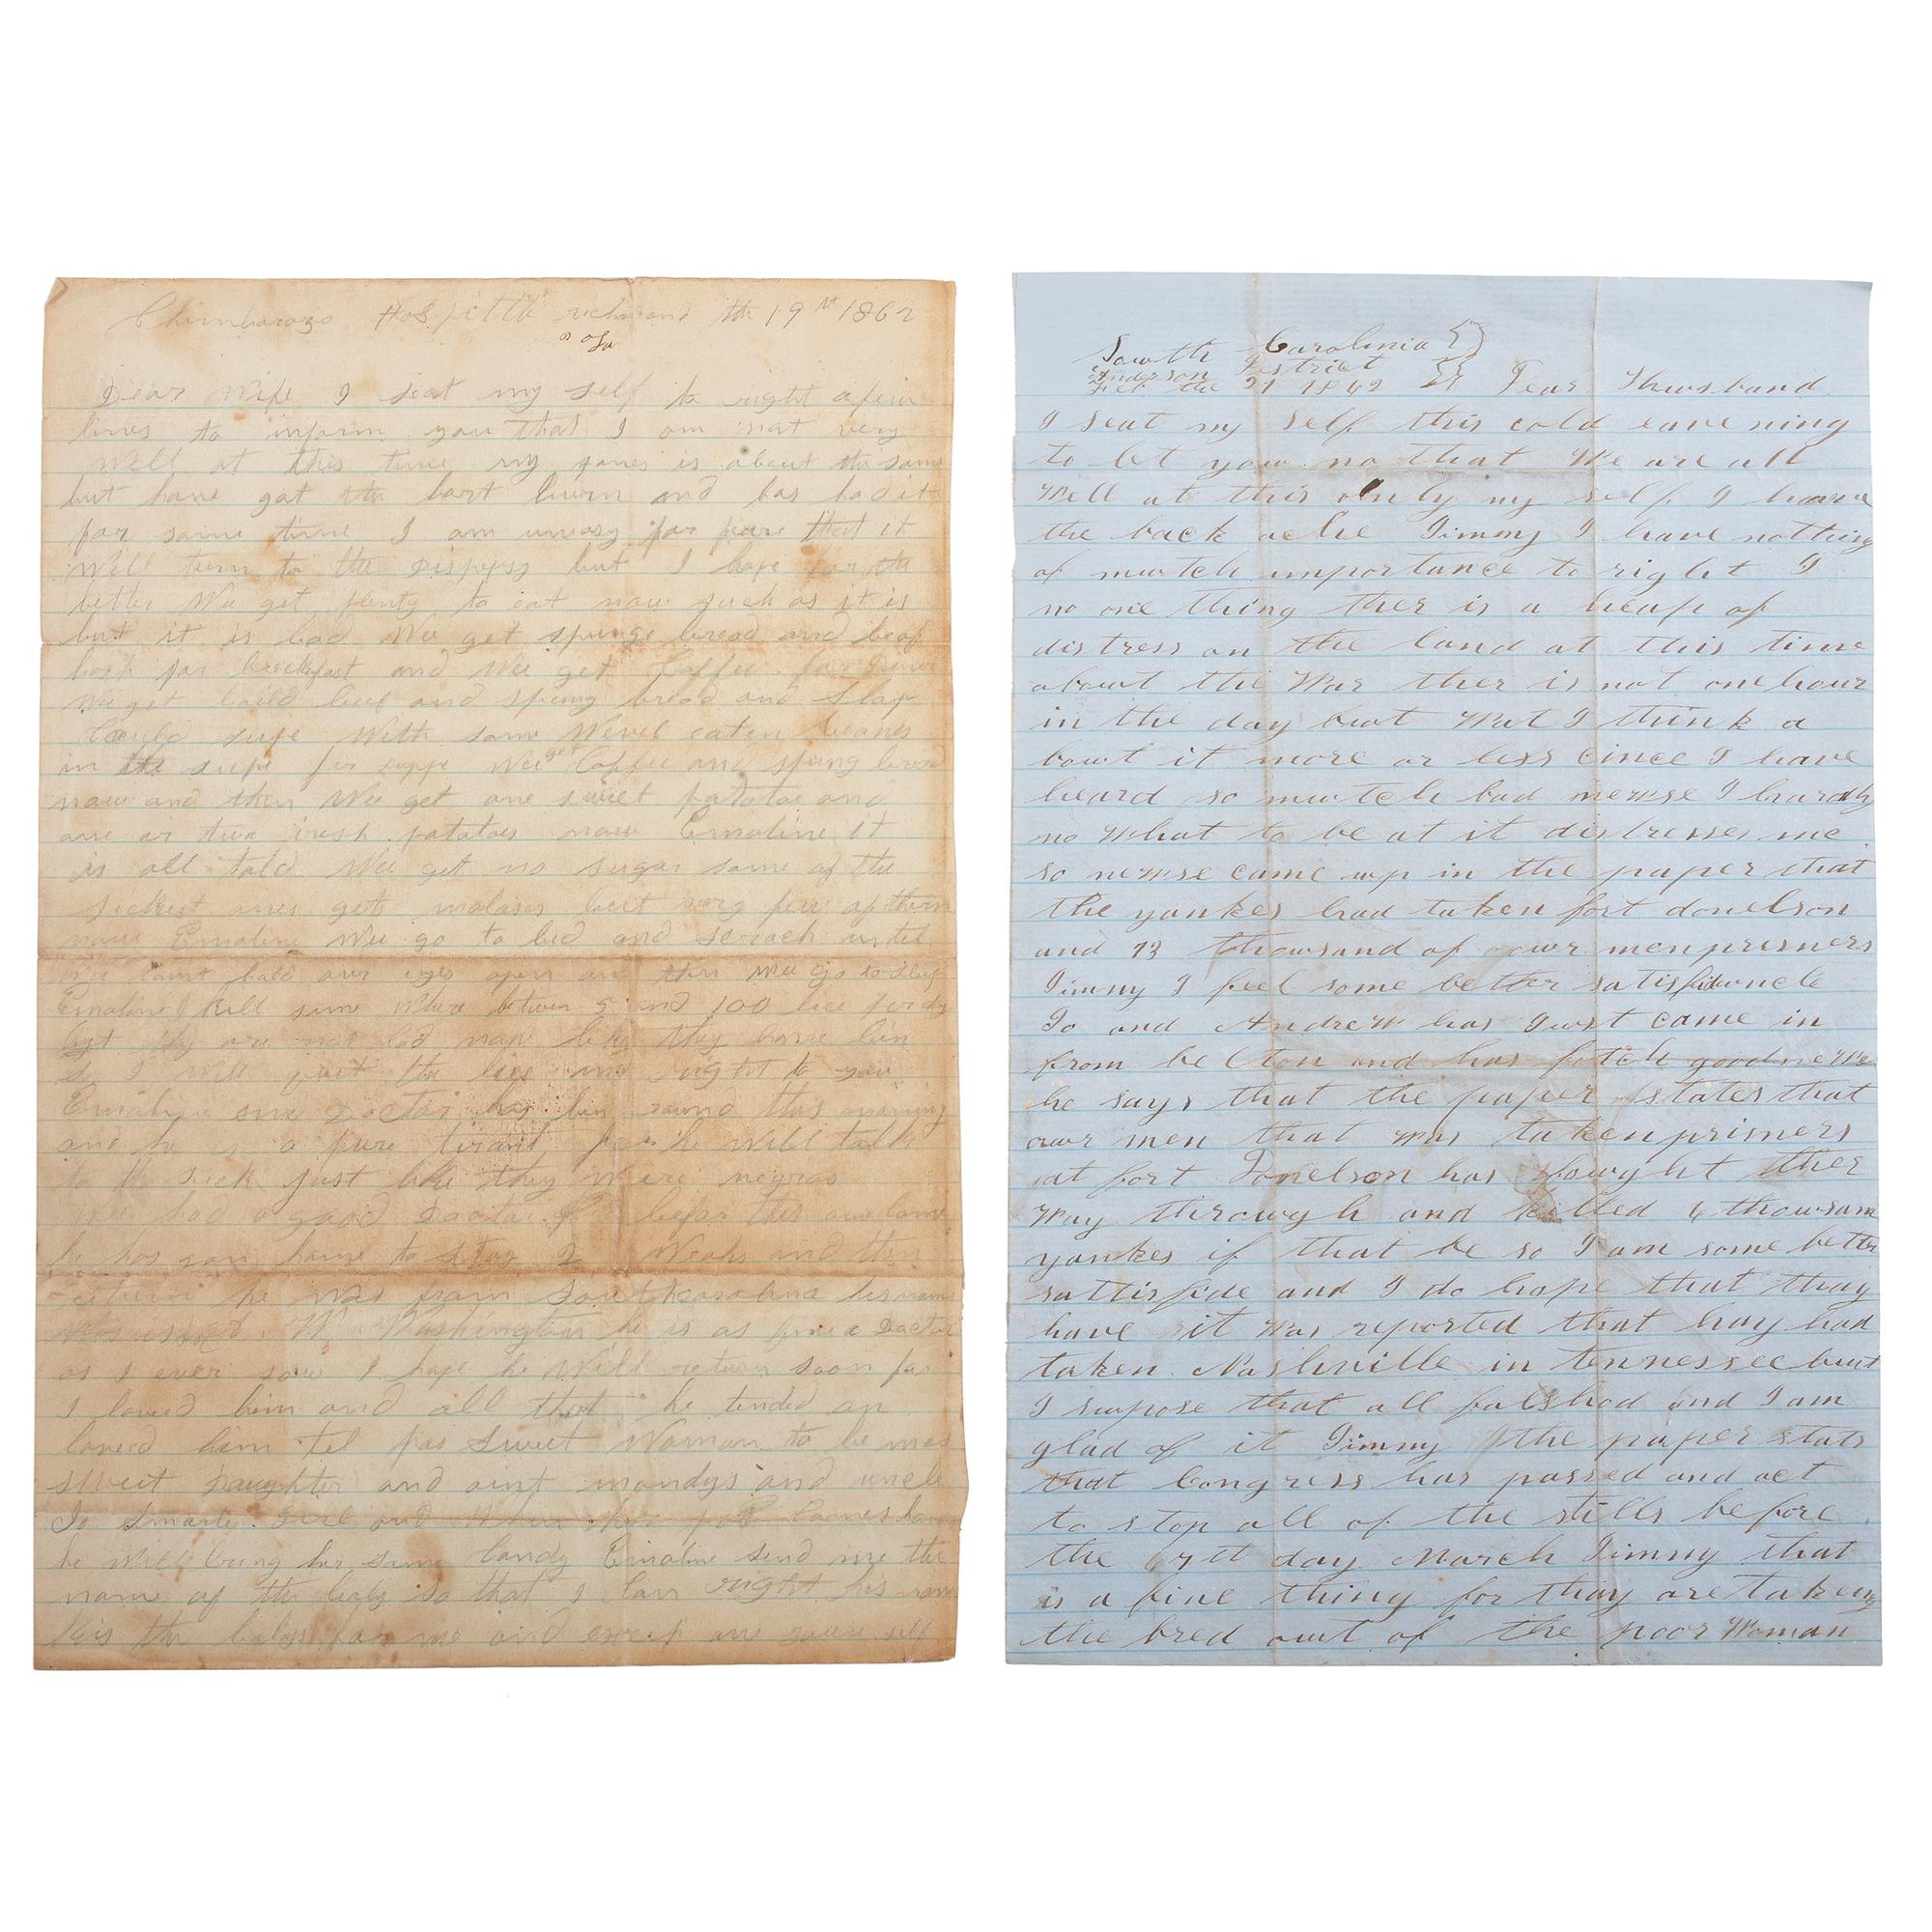 Chimbarazo Hospittle richmond the 19 Nt 1862
Va
Dear Wife I seat my self to right a few
lines to inform you that I am not very
Well at this time my is about the same
but have got the hart burn and has had it
for some time I am uneasy for feare that it
Will turn to the Dispepsy but I hope for the
better We get plenty to eat now such as it is
but it is bad Wee get spunge bread and beaf
hash for breckfast and Wee get Coffee for
Wee get boild beef and spung bread and
supe With some Wevel eaten beanes
in the supe for suppe Wee get Coffee and spung bread
now and then Wee get one sweet patatoe and
one or two irish potatoes now Emaline it
is all told Wee get no sugar some of the
sickest ones gett molases but very few of them
now Emaline Wee go to bed and scrach until
Wee cant hold our eyes open and then Wee go to sleep
Emaline I kill some Where between 5 and 100 lice per day
but they are not bad now like they have bin
so I Will quit the lice and right to you
Emaline one Doctor has bin round this morning
and he is a pure tirant for he Will talk
to the sick just like they Were negros
Wee had a good Doctor befor this one came
he has gon home to stay 2 Weaks and then
return he Was from South carolina his name
W. Washington he is as fine a Doctor
as I ever saw I hope he Will return soon for
I loved him and all that he tended on
loved him tel pas sweet Woman to be mas
sweet Daughter and aint mandys and uncle
Jo smarte Girl and When pas Comes home
he Will bring her some Candy Emaline send me the
name of the baby so that I Can right his name
Kis the baby for me and excep one youre self
Sowth Carolinia
Anderson Destrict
Feb the 21 1862 Dear Huwsband
I seat my self this cold eavening
to let yow no that We are all
Well at this only my self I heave
the back ache Jimmy I have nothing
of mutch importance to right I
no one thing ther is a heap of
distress on the land at this time
abowt the War ther is not one hour
in the day but Wat I think a
bowt it more or less cince I have
heard so mutch bad newse I hardly
no What to be at it distresses me
so newse came up in the paper that
the yankes had taken fort donelson
and 13 thowsand of owr men prisners
Jimmy I feel some better satisfid uncle
Jo and AndreW has Just came in
from belton and has fetch good neWs
he says that the paper states that
owr men that Was taken prisners
at fort Donelson has fowght ther
Way throwgh and killed 6 thowsan
yankes if that be so I am some better
sattisfide and I do hope that thay
have it Was reported that thay had
taken Nashville in tennessee but
I supose that all falshod and I am
glad of it Jimmy the paper stats
that Congress has passed and act
to stop all of the stills before
the day March Jimmy that
is a fine thing for thay are taking
the bred owt of the poor Woman